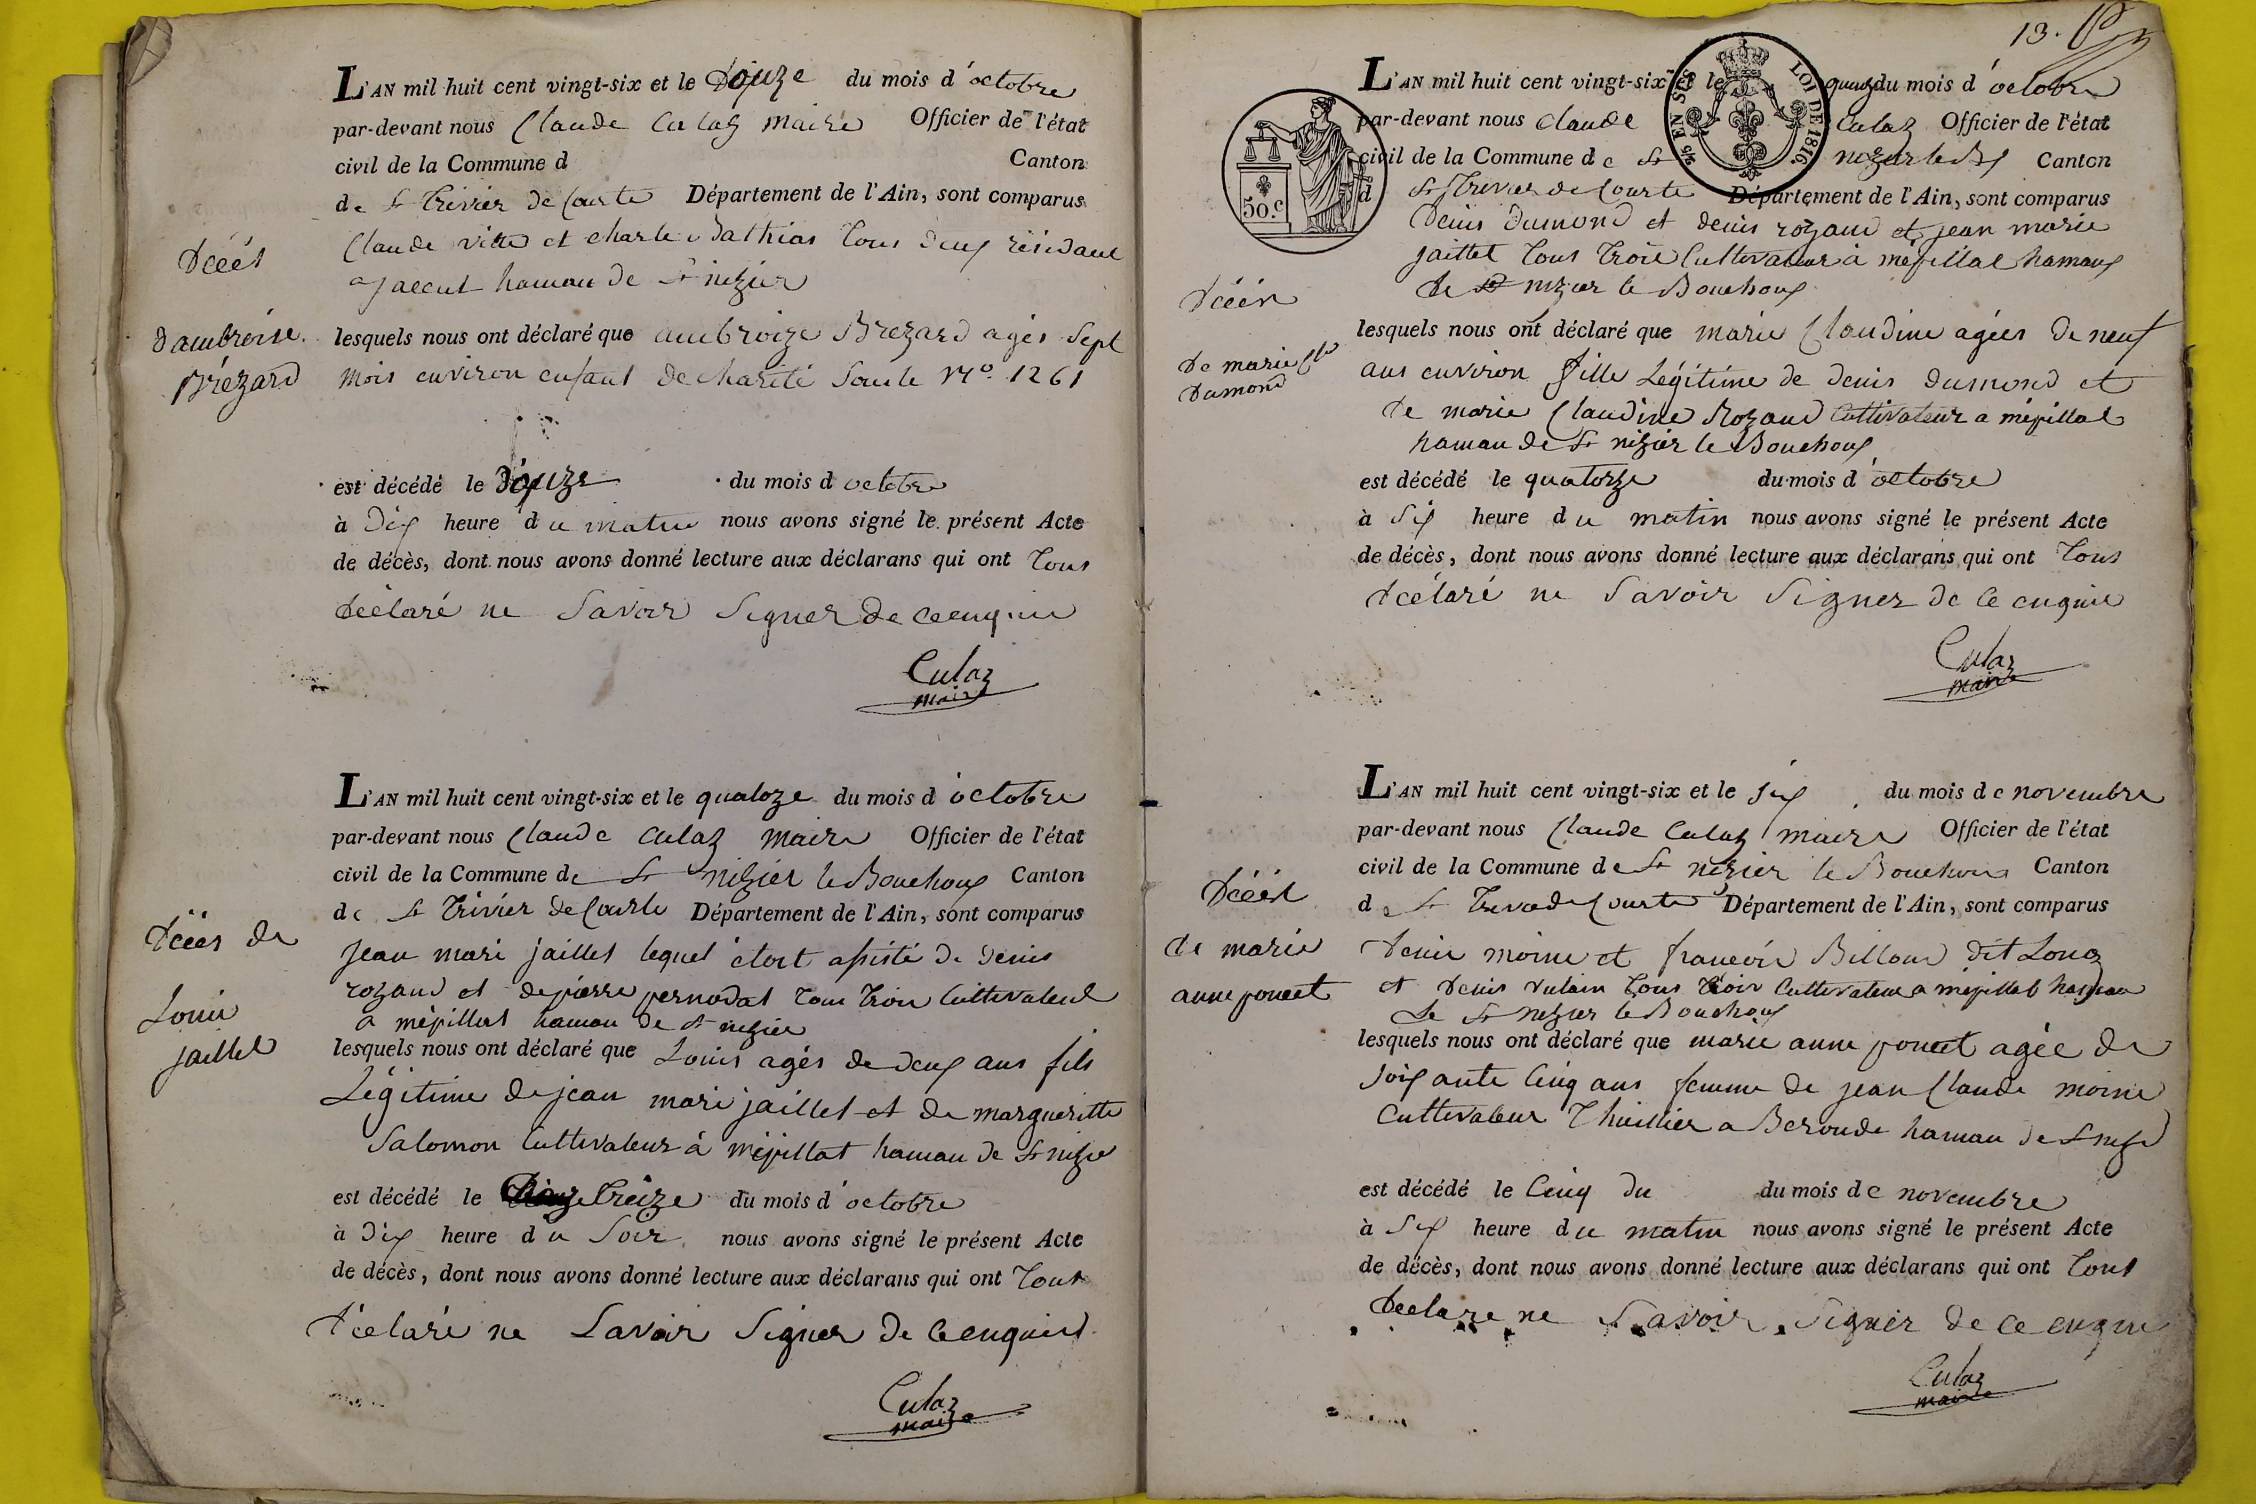 L'AN mil huit cent vingt-six et le Douze du mois d'octobre
par-devant nous Claude Culaz maire Officier de l'état
civil de la Commune d Canton
de St trivier de Courte Département de l'Ain, sont comparus
Claude vitte et charle dathias tous deux résidant
a jaccut hamau de St nizier
Décés
d'ambroise
Brézard
lesquels nous ont déclaré que ambroize Brezard agés Sept
mois environ enfant de charité Sous le N.º 1261
est décédé le Douze du mois d octobre
à Dix heure du matin nous avons signé le présent Acte
de décès, dont nous avons donné lecture aux déclarans qui ont tous
déclaré ne Savoir Signer de ce enquis
Culaz
maire
L'AN mil huit cent vingt-six et le quatoze du mois d'octobre
par-devant nous Claude Culaz maire Officier de l'état
civil de la Commune de St nizier le Bouchoux Canton
de St trivier de Courte Département de l'Ain, sont comparus
jean mari jaillet lequel étoit assisté de denis
rozand et de pierre pernodat tous trois Cultivateur
a mépillat hamau de St nizier
Décés de
Louis
jaillet
lesquels nous ont déclaré que Louis agés de deux ans fils
Légitime de jean mari jaillet et de margueritte
Salomon Cultivateur à mépillat hamau de St nizie
est décédé le treize du mois d'octobre
à Dix heure du Soir nous avons signé le présent Acte
de décès, dont nous avons donné lecture aux déclarans qui ont tous
déclaré ne Savoir Signer de ce enquis
Culaz
maire
13.
EN SUS
LOI DE 1816
50.c
L'AN mil huit cent vingt-six et le quinz du mois d'octobre
par-devant nous Claude Culaz Officier de l'état
civil de la Commune de St nizier le Bx Canton
d St trivier de Courte Département de l'Ain, sont comparus
denis dumond et denis rozand et jean marie
jaillet tous trois Cultivateur à mépillat hamaux
de St nizier le Bouchoux
Décés
de marie Cl
Dumond
lesquels nous ont déclaré que marie Claudine agées de neuf
ans environ fille Légitime de denis dumond et
de marie Claudine Rozand Cultivateur a mépillat
hamau de St nizier le Bouchoux
est décédé le quatorze du mois d'octobre
à Six heure du matin nous avons signé le présent Acte
de décès, dont nous avons donné lecture aux déclarans qui ont tous
déclaré ne Savoir Signer de ce enquis
Culaz
maire
L'AN mil huit cent vingt-six et le six du mois de novembre
par-devant nous Claude Culaz maire Officier de l'état
civil de la Commune de St nizier le Bouchoux Canton
de St Trivie de Courte Département de l'Ain, sont comparus
denis moine et francois Billoud dit Long
et denis vulain tous trois Cultivateur a mépillat hamau
de St nizier le Bouchoux
Décés
de marie
anne poncet
lesquels nous ont déclaré que marie anne poncet agée de
soixante Cinq ans femme de jean Claude moine
Cultivateur Thuillier a Beroude hamau de St nizie
est décédé le Cinq du du mois de novembre
à Six heure du matin nous avons signé le présent Acte
de décès, dont nous avons donné lecture aux déclarans qui ont tous
declare ne Savoir Signer de ce enquis
Culaz
maire